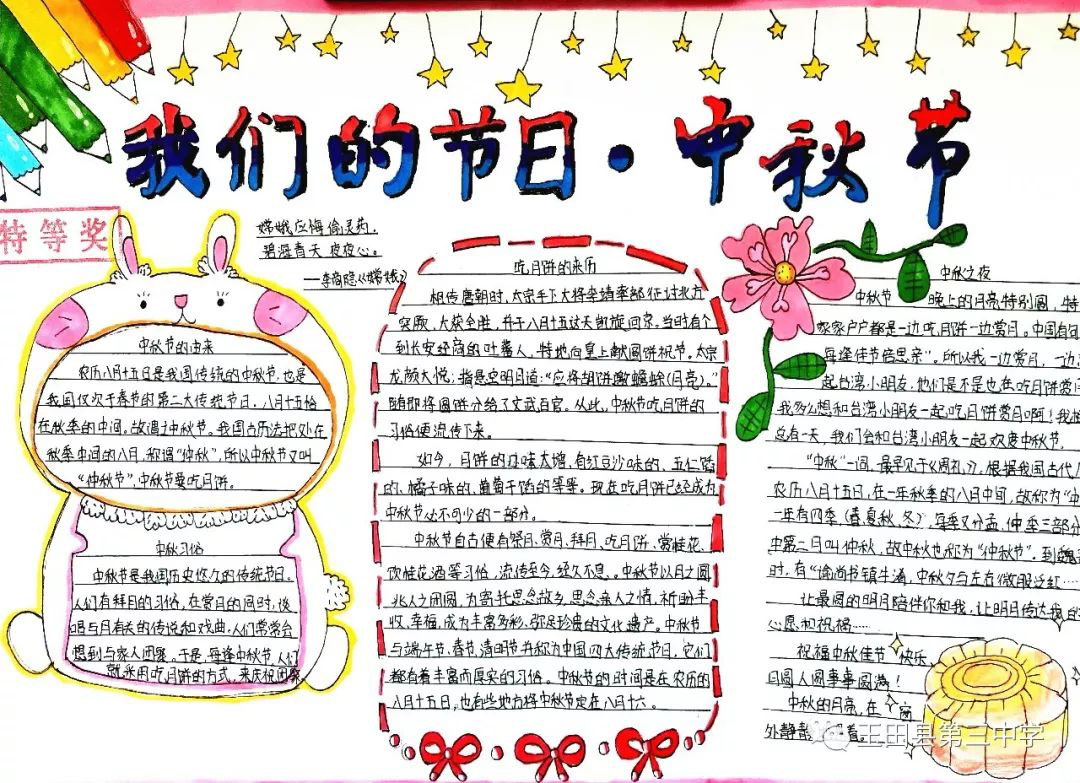 我们的节日·中秋节
特等奖
嫦娥应悔偷灵药,
碧海青天夜夜心。
——李商隐《嫦娥》
中秋节的由来
农历八月十五日是我国传统的中秋节,也是
我国仅次于春节的第二大传统节日。八月十五恰
在秋季的中间,故谓之中秋节。我国古历法把处在
秋季中间的八月,称谓“仲秋”,所以中秋节又叫
“仲秋节”,中秋节要吃月饼。
中秋习俗
中秋节是我国历史悠久的传统节日。
人们有拜月的习俗,在赏月的同时,谈
唱与月有关的传说和戏曲,人们常常会
想到与家人团聚。于是,每逢中秋节,人们
就采用吃月饼的方式,来庆祝团聚
吃月饼的来历
相传唐朝时,太宗手下大将李靖率部征讨北方
突厥,大获全胜,并于八月十五这天凯旋回京。当时有个
到长安经商的吐蕃人,特地向皇上献圆饼祝节。太宗
龙颜大悦,指悬空明月道:“应将胡饼邀蟾蜍(月亮)。”
随即将圆饼分给了文武百官。从此,中秋节吃月饼的
习俗便流传下来。
如今,月饼的口味大增,有红豆沙味的、五仁馅
的、橘子味的、葡萄干馅的等等。现在吃月饼已经成为
中秋节必不可少的一部分。
中秋节自古便有祭月、赏月、拜月、吃月饼、赏桂花、
饮桂花酒等习俗,流传至今,经久不息。中秋节以月之圆
兆人之团圆,为寄托思念故乡,思念亲人之情,祈盼丰
收、幸福,成为丰富多彩、弥足珍贵的文化遗产。中秋节
与端午节、春节、清明节并称为中国四大传统节日,它们
都有着丰富而厚实的习俗。中秋节的时间是在农历的
八月十五日,也有些地方将中秋节定在八月十六。
中秋之夜
中秋节 晚上的月亮特别圆,特
家家户户都是一边吃月饼一边赏月。中国有句
每逢佳节倍思亲”。所以我一边赏月,一边
起台湾小朋友,他们是不是也在吃月饼赏
我多么想和台湾小朋友一起吃月饼赏月啊!我
总有一天,我们会和台湾小朋友一起欢度中秋节。
“中秋”一词,最早见于《周礼》,根据我国古代
农历八月十五日,在一年秋季的八月中间,故称为“中
一年有四季(春、夏、秋、冬),每季又分孟、仲、季三部分
中第二月叫仲秋,故中秋也称为“仲秋节”。到魏
时,有“谕尚书镇牛渚,中秋夕与左右微服泛江……
让最圆的明月陪伴你和我,让明月传达我
心愿和祝福……
祝福中秋佳节 快乐
月圆人圆事事圆满!
中秋的月亮,在 窗
外静静 看。
玉田县第三中学